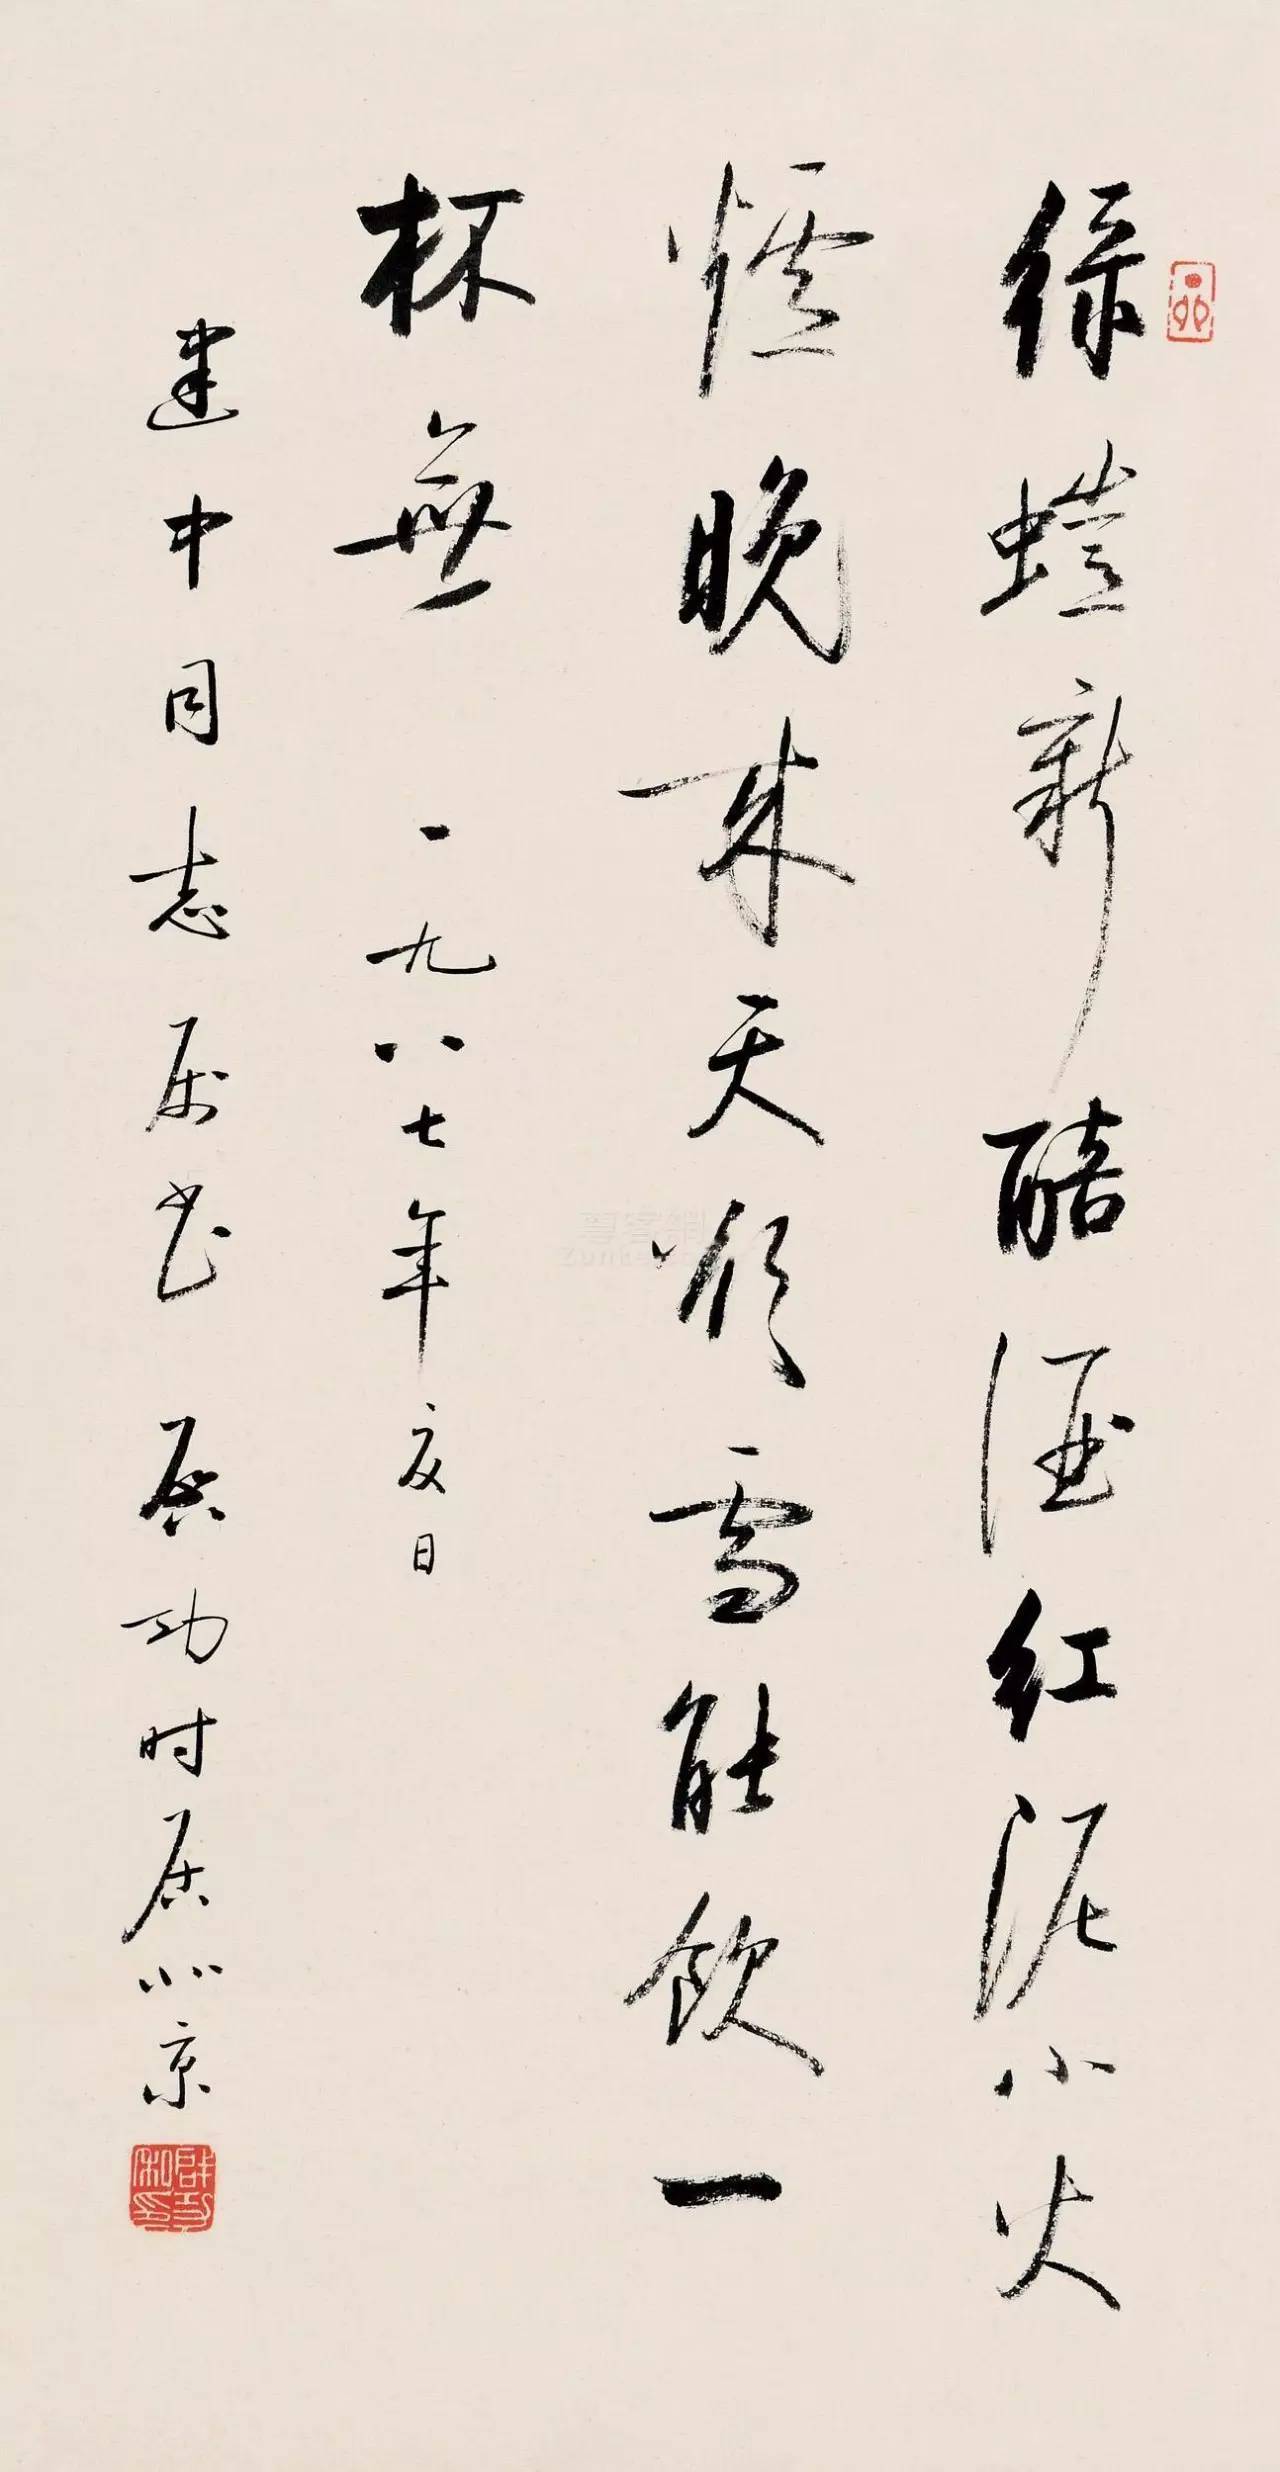 绿螘新醅酒红泥小火
爐晚来天欲雪能飲一
杯無 一九八七年夏日
建中同志属书 启功时居北京
啟功私印